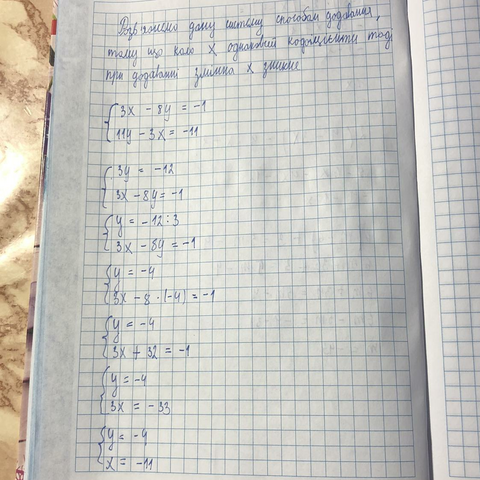 Розв'яжемо дану систему способом додавання,
тому що коло x однаковий коефіцієнти тоді
при додаванні змінна x зникне
{3x - 8y = -1
{11y - 3x = -11
{3y = -12
{3x - 8y = -1
{y = -12:3
{3x - 8y = -1
{y = -4
{3x - 8 · (-4) = -1
{y = -4
{3x + 32 = -1
{y = -4
{3x = -33
{y = -4
{x = -11